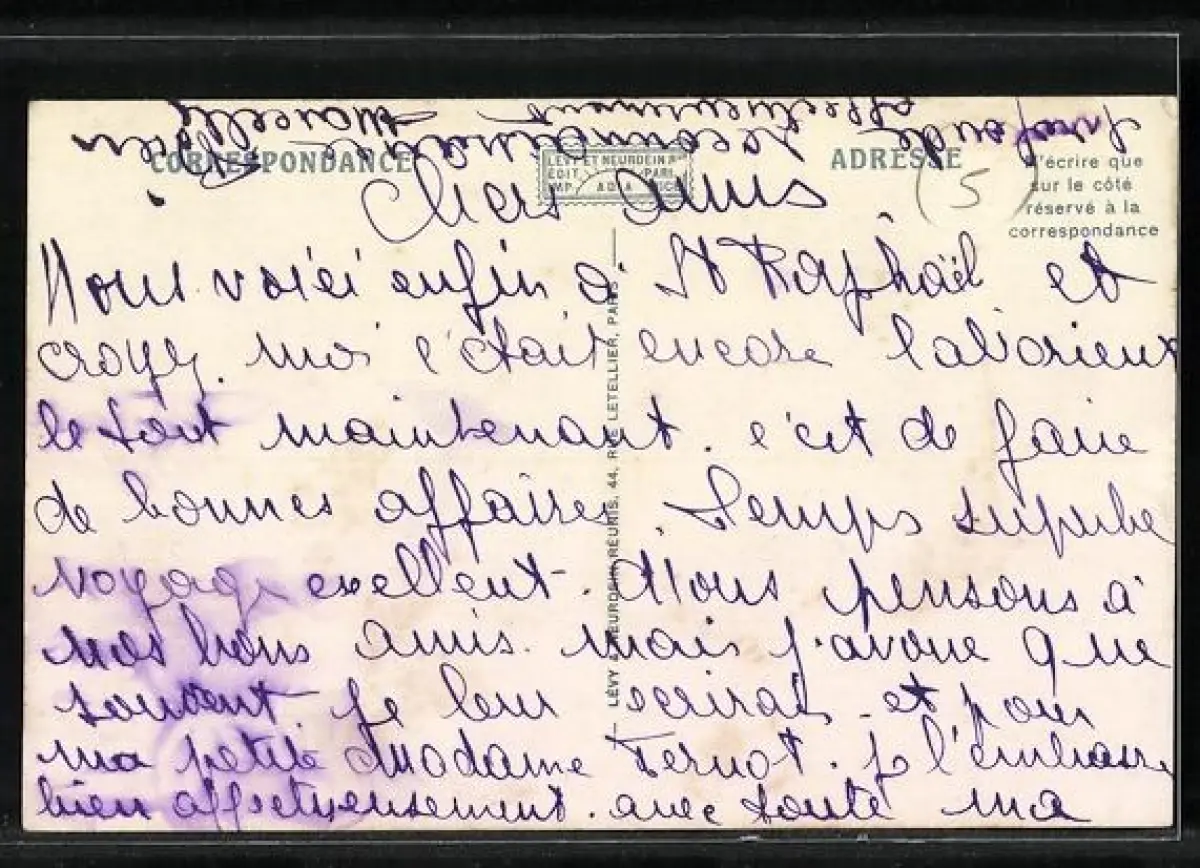 CORRESPONDANCE
LEVY ET NEURDEIN Rs
EDIT. PARI
IMP. ADIA NICE
ADRESSE
(5)
N'écrire que
sur le côté
réservé à la
correspondance
Chers amis
Nous voici enfin à St Raphaël et
croyez moi c'était encore laborieux
le tout maintenant. c'est de faire
de bonnes affaires. Temps superbe
voyage exellent. Nous pensons à
nos bons amis. mais j'avoue que
souvent. Je leur ecrirai. et pour
ma petite Madame Fernot. je l'embrasse
bien affectueusement. avec toute ma
profonde reconnaissance
affectueusement
Marcelle
LÉVY & NEURDEIN RÉUNIS, 44, RUE LETELLIER, PARIS